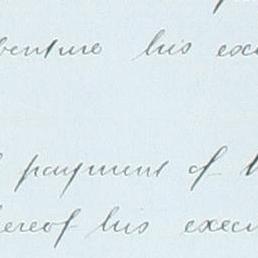 benture his exe
payment of
hereof his execu